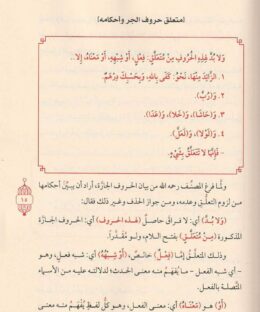 [متعلق حروف الجر وأحكامه]
وَلَا بُدَّ لِهَذِهِ الْحُرُوفِ مِنْ مُتَعَلَّقٍ: فِعْلٍ، أَوْ شِبْهِهِ، أَوْ مَعْنَاهُ إِلَّا..
١. الزَّائِدَ مِنْهَا، نَحْوُ: كَفَى بِاللهِ، وَبِحَسْبِكَ دِرْهَمٌ.
٢. وَ(رُبَّ).
٣. وَ(حَاشَا)، وَ(خَلَا)، وَ(عَدَا).
٤. وَ(لَوْلَا)، وَ(لَعَلَّ).
- فَإِنَّهَا لَا تَتَعَلَّقُ بِشَيْءٍ.
ولمَّا فرغ المصنِّف رحمه الله من بيان الحروف الجارَّة أراد أن يبيِّن أحكامها
من لزوم المتعلَّق وعدمه، ومن جواز الحذف وغير ذلك فقال:
(وَلَا بُدَّ) أي: لا فراق حاصل (لهذه الحروف) أي: الحروف الجارَّة
المذكورة (مِنْ مُتَعَلَّقٍ) بفتح اللام، ولو مقدَّرا.
(فِعْلٍ) أي: الفعل خالصٍ، (أَوْ شِبْهِهِ) أي: شبه فعل، وهو
- أي شبه الفعل - ما يُفهَمُ منه معنى الحدث لدلالته عليه من الأسماء
المتصلة بالفعل.
(أَوْ) هو (مَعْنَاهُ) أي: معنى الفعل، وهو كلُّ لفظٍ يُفهَمُ منه معنى
١٥